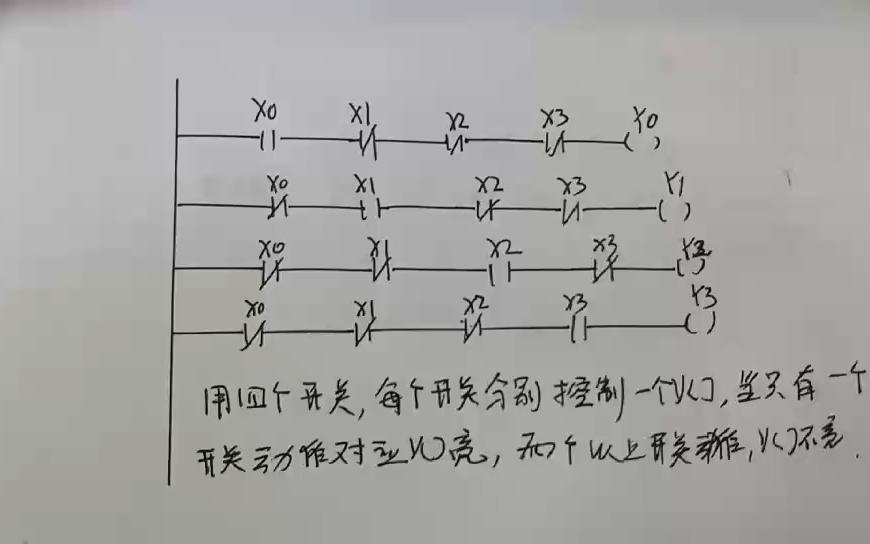 X0 X1 X2 X3 Y0
X0 X1 X2 X3 Y1
X0 X1 X2 X3 Y2
X0 X1 X2 X3 Y3
用四个开关,每个开关分别控制一个Y( ),当只有一个
开关动作对应Y( )亮,两个以上开关动作,Y( )不亮.